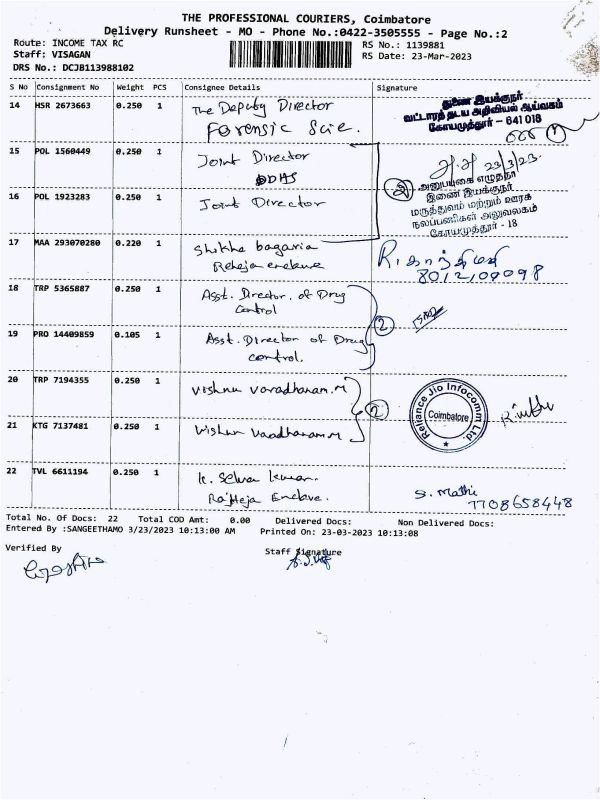 THE PROFESSIONAL COURIERS, Coimbatore
Delivery Runsheet - MO - Phone No.:0422-3505555 - Page No.:2
Route: INCOME TAX RC
RS No.: 1139881
Staff: VISAGAN
RS Date: 23-Mar-2023
DRS No.: DCJB113988102
S No Consignment No Weight PCS Consignee Details Signature
14 HSR 2673663 0.250 1 The Deputy Director
Forensic Scie.
துணை இயக்குநர்
வட்டாரத் தடய அறிவியல் ஆய்வகம்
கோயமுத்தூர் - 641 018
1
15 POL 1560449 0.250 1 Joint Director
DDHS
23/3/23
2
16 POL 1923283 0.250 1 Joint Director
இணை இயக்குநர்
மருத்துவம் மற்றும் ஊரக
நலப்பணிகள் அலுவலகம்
கோயமுத்தூர் - 18
17 MAA 293070280 0.220 1 Shikha bagaria
Raheja enclave
8012109098
18 TRP 5365887 0.250 1 Asst. Director. of Drug
Control
2
19 PRO 14409859 0.105 1 Asst. Director of Drug
control.
20 TRP 7194355 0.250 1 Vishnu Varadharam.M
2
Reliance Jio Infocomm Ltd.
Coimbatore
21 KTG 7137481 0.250 1 Vishnu Varadharam.M
22 TVL 6611194 0.250 1 K. Selva kumar.
Raheja Enclave.
S. Mathi
7708658448
Total No. Of Docs: 22 Total COD Amt: 0.00 Delivered Docs: Non Delivered Docs:
Entered By :SANGEETHAMO 3/23/2023 10:13:00 AM Printed On: 23-03-2023 10:13:08
Verified By
Staff Signature